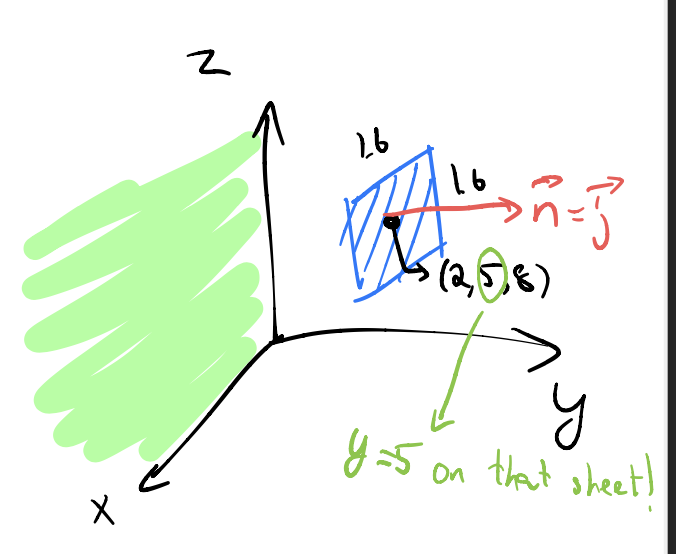 z
1.6
1.6
n⃗ = j⃗
(2,5,8)
y
y=5 on that sheet!
x